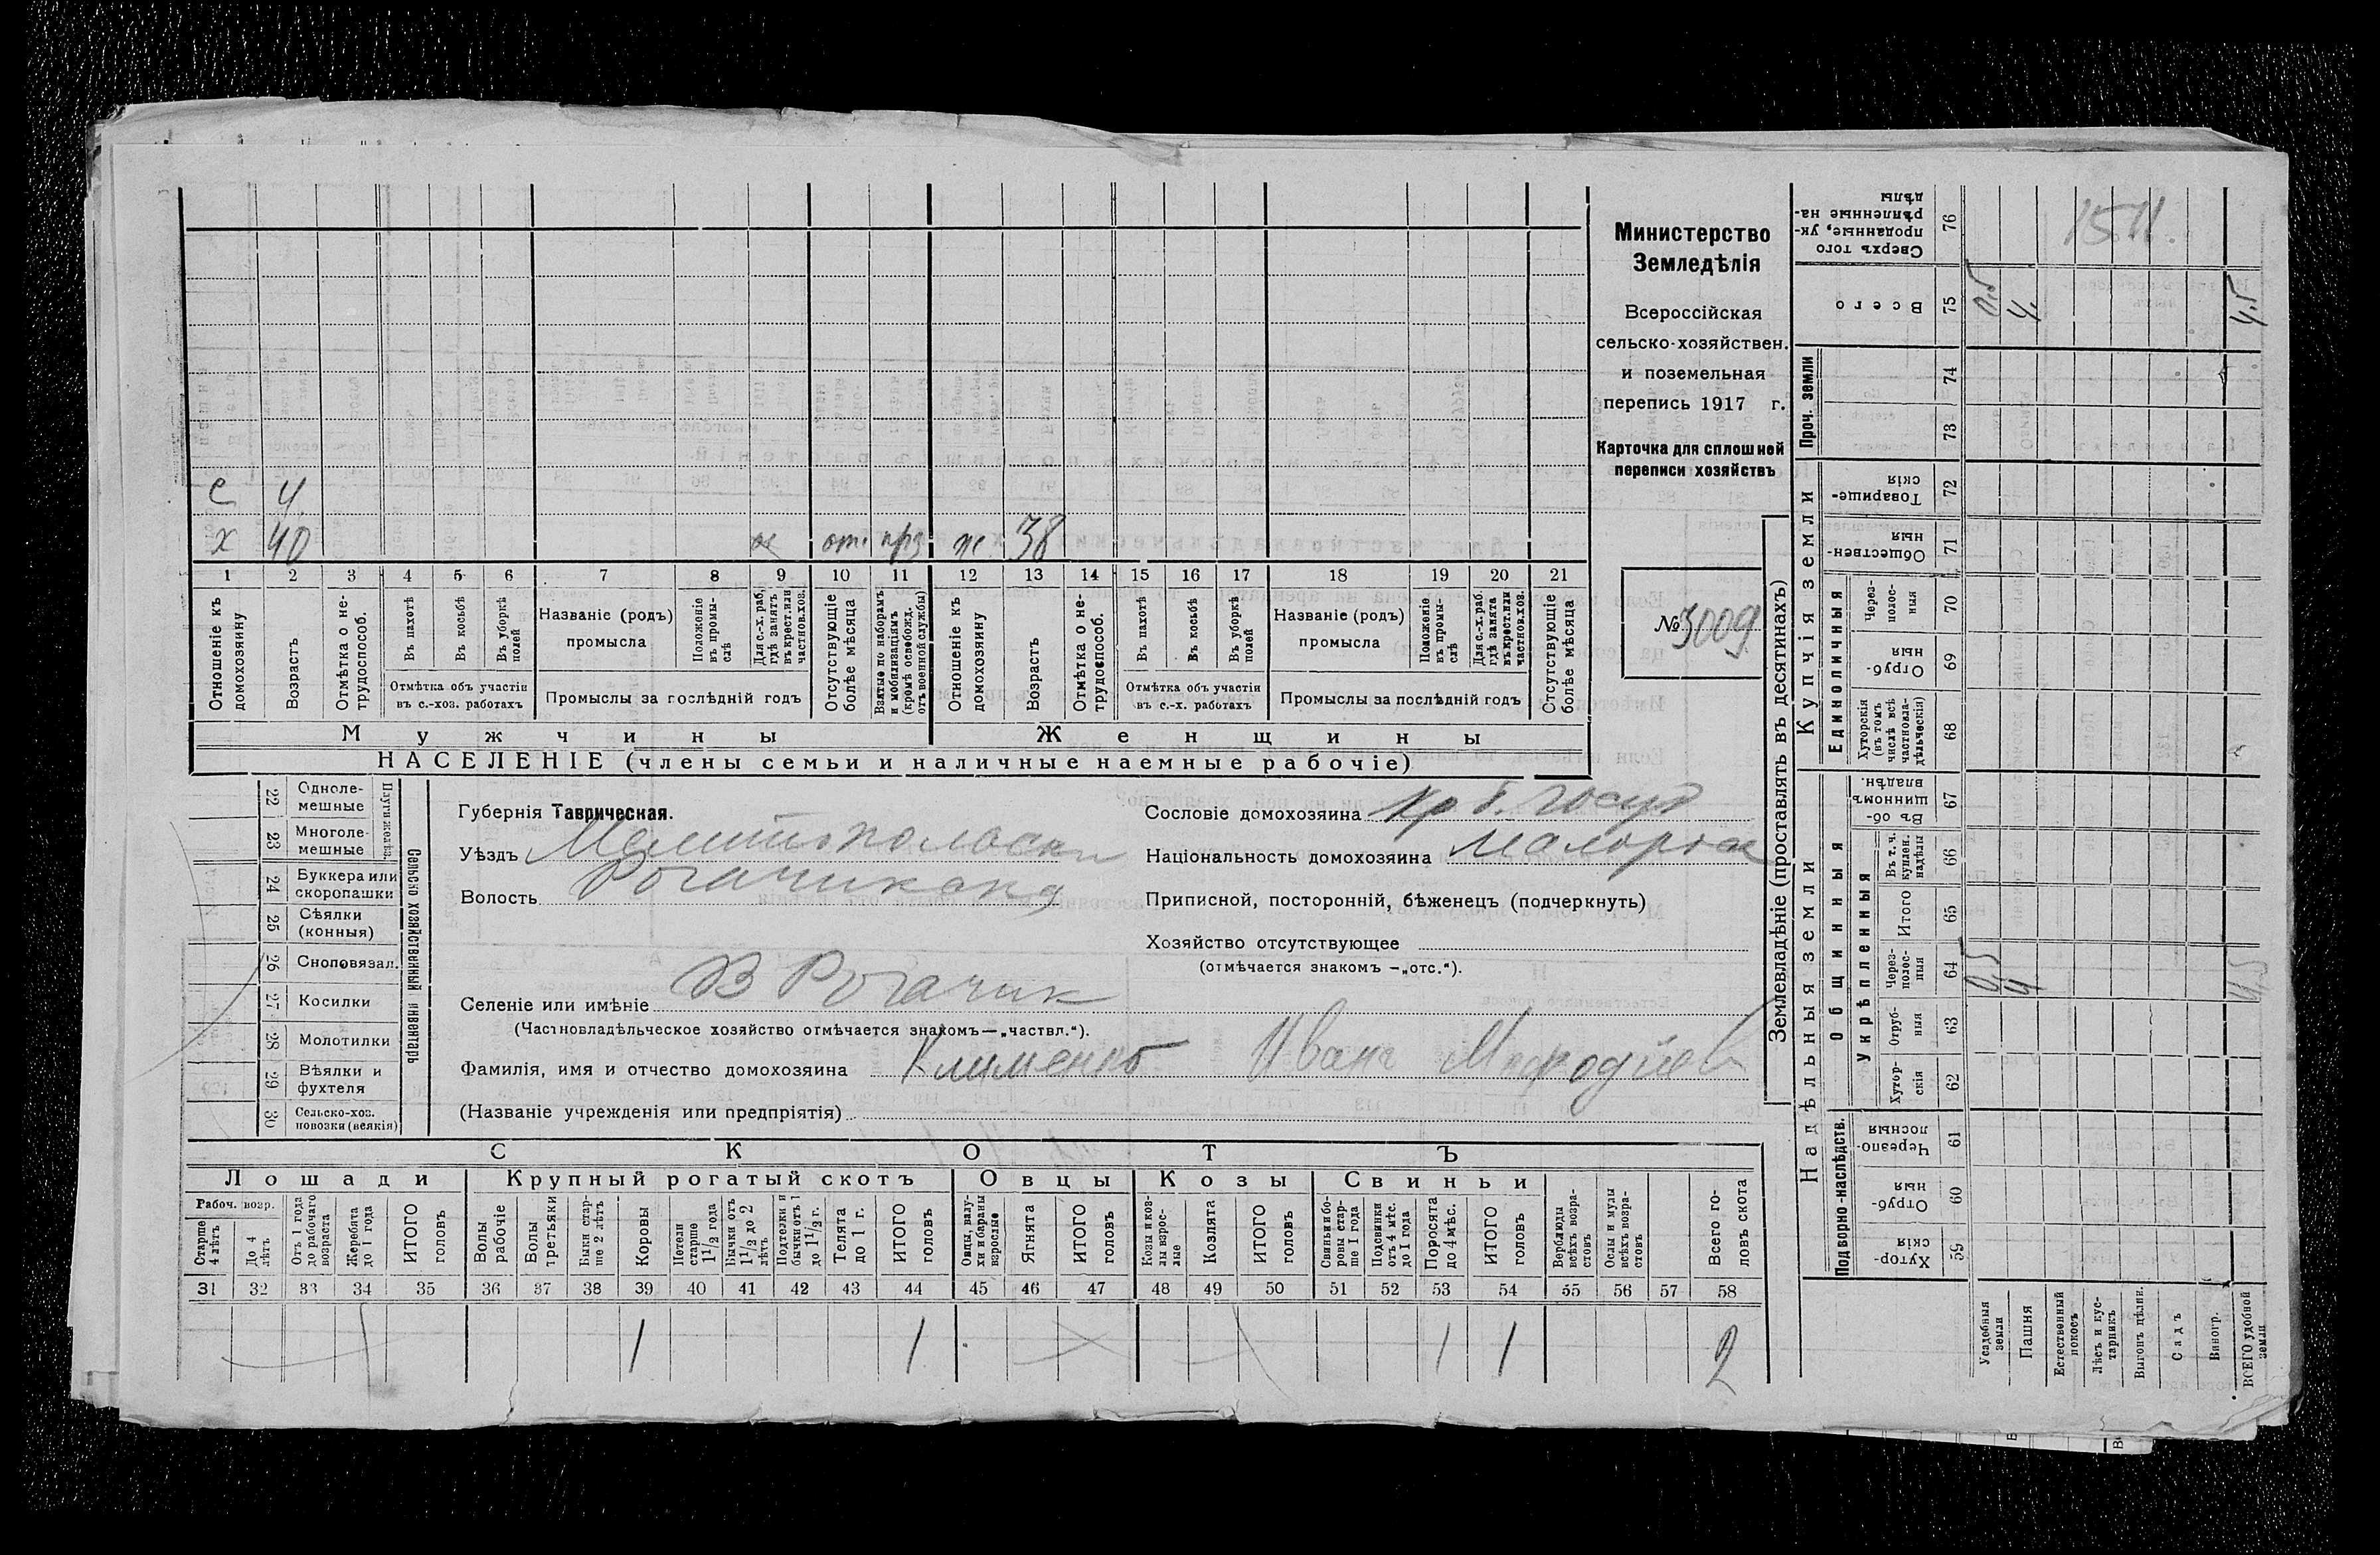 Министерство
Земледѣлія
Всероссійская
сельско-хозяйствен.
и поземельная
перепись 1917 г.
Карточка для сплошней
переписи хозяйствъ
№ 3009
с 4
х 40 отс прз ж 38
1 2 3 4 5 6 7 8 9 10 11 12 13 14 15 16 17 18 19 20 21
Отношеніе къ домохозяину
Возрастъ
Отмѣтка о не-трудоспособ.
Въ пахотѣ
Въ косьбѣ
Въ уборкѣ полей
Отмѣтка объ участіи въ с.-хоз. работахъ
Названіе (родъ) промысла
Положеніе въ промы-слѣ
Для с.-х. раб, гдѣ занятъ въ крест. или частнов. хоз.
Промыслы за послѣдній годъ
Отсутствующіе болѣе мѣсяца
Взятые по наборамъ и мобилизаціямъ (кромѣ освобожд. отъ военной службы)
Отношеніе къ домохозяину
Возрастъ
Отмѣтка о не-трудоспособ.
Въ пахотѣ
Въ косьбѣ
Въ уборкѣ полей
Отмѣтка объ участіи въ с.-х. работахъ
Названіе (родъ) промысла
Положеніе въ промы-слѣ
Для с.-х. раб. гдѣ занята въ крест. или частнов. хоз.
Промыслы за послѣдній годъ
Отсутствующіе болѣе мѣсяца
Мужчины Женщины
НАСЕЛЕНІЕ (члены семьи и наличные наемные рабочіе)
Сельско хозяйственный инвентарь
22 Одноле-мешные
23 Многоле-мешные
24 Буккера или скоропашки
25 Сѣялки (конныя)
26 Сноповязал.
27 Косилки
28 Молотилки
29 Вѣялки и фухтеля
30 Сельско-хоз. повозки (всякія)
Губернія Таврическая.
Уѣздъ Мелитопольски
Волость Рогачикская
Селеніе или имѣніе В Рогачик
(Частновладѣльческое хозяйство отмѣчается знакомъ—„частвл.“).
Фамилія, имя и отчество домохозяина Клименко Иванъ Мефодіев
(Названіе учрежденія или предпріятія)
Сословіе домохозяина кр б. госуд
Національность домохозяина малорос
Приписной, посторонній, бѣженецъ (подчеркнуть)
Хозяйство отсутствующее
(отмѣчается знакомъ —„отс.“).
СКОТЪ
Лошади Крупный рогатый скотъ Овцы Козы Свиньи
Рабоч. возр.
Старше 4 лѣтъ
До 4 лѣтъ
Отъ 1 года до рабочаго возраста
Жеребята до 1 года
ИТОГО головъ
Волы рабочіе
Волы третьяки
Быки стар-ше 2 лѣтъ
Коровы
Нетели старше 1½ года
Бычки отъ 1½ до 2 лѣтъ
Подтелки и бычки отъ 1 до 1½ г.
Телята до 1 г.
ИТОГО головъ
Овцы, валу-хи и бараны взрослые
Ягнята
ИТОГО головъ
Козы и коз-лы взрос-лые
Козлята
ИТОГО головъ
Свиньи и бо-ровы стар-ше 1 года
Подсвинки отъ 4 мѣс. до 1 года
Поросята до 4 мѣс.
ИТОГО головъ
Верблюды всѣхъ возра-стовъ
Ослы и мулы всѣхъ возра-стовъ
Всего го-ловъ скота
31 32 33 34 35 36 37 38 39 40 41 42 43 44 45 46 47 48 49 50 51 52 53 54 55 56 57 58
1 1 1 1 2
Землевладѣніе (проставлять въ десятинахъ)
Надѣльныя земли Купчія земли Проч. земли
Подворно-наслѣдств. Общинныя Единоличныя
Укрѣпленныя
Хутор-скія 59
Отруб-ныя 60
Черезпо-лосныя 61
Хутор-скія 62
Отруб-ныя 63
Через-полос-ныя 64
Итого 65
Въ т. ч. куплен. надѣлы 66
Въ об-щинномъ владѣн. 67
Хуторскія (въ томъ числѣ всѣ частновла-дѣльческія) 68
Отруб-ныя 69
Через-полос-ныя 70
Обществен-ныя 71
Товарище-скія 72
73
74
Всего 75
Сверхъ того проданные, ук-рѣпленные на-дѣлы 76
Усадебныя земли 0,5 0,5
Пашня 4 4.
Естественный покосъ
Лѣсъ и кус-тарникъ
Выгонъ цѣлин.
Садъ
Виногр.
ВСЕГО удобной земли 4,5 4,5
1511.